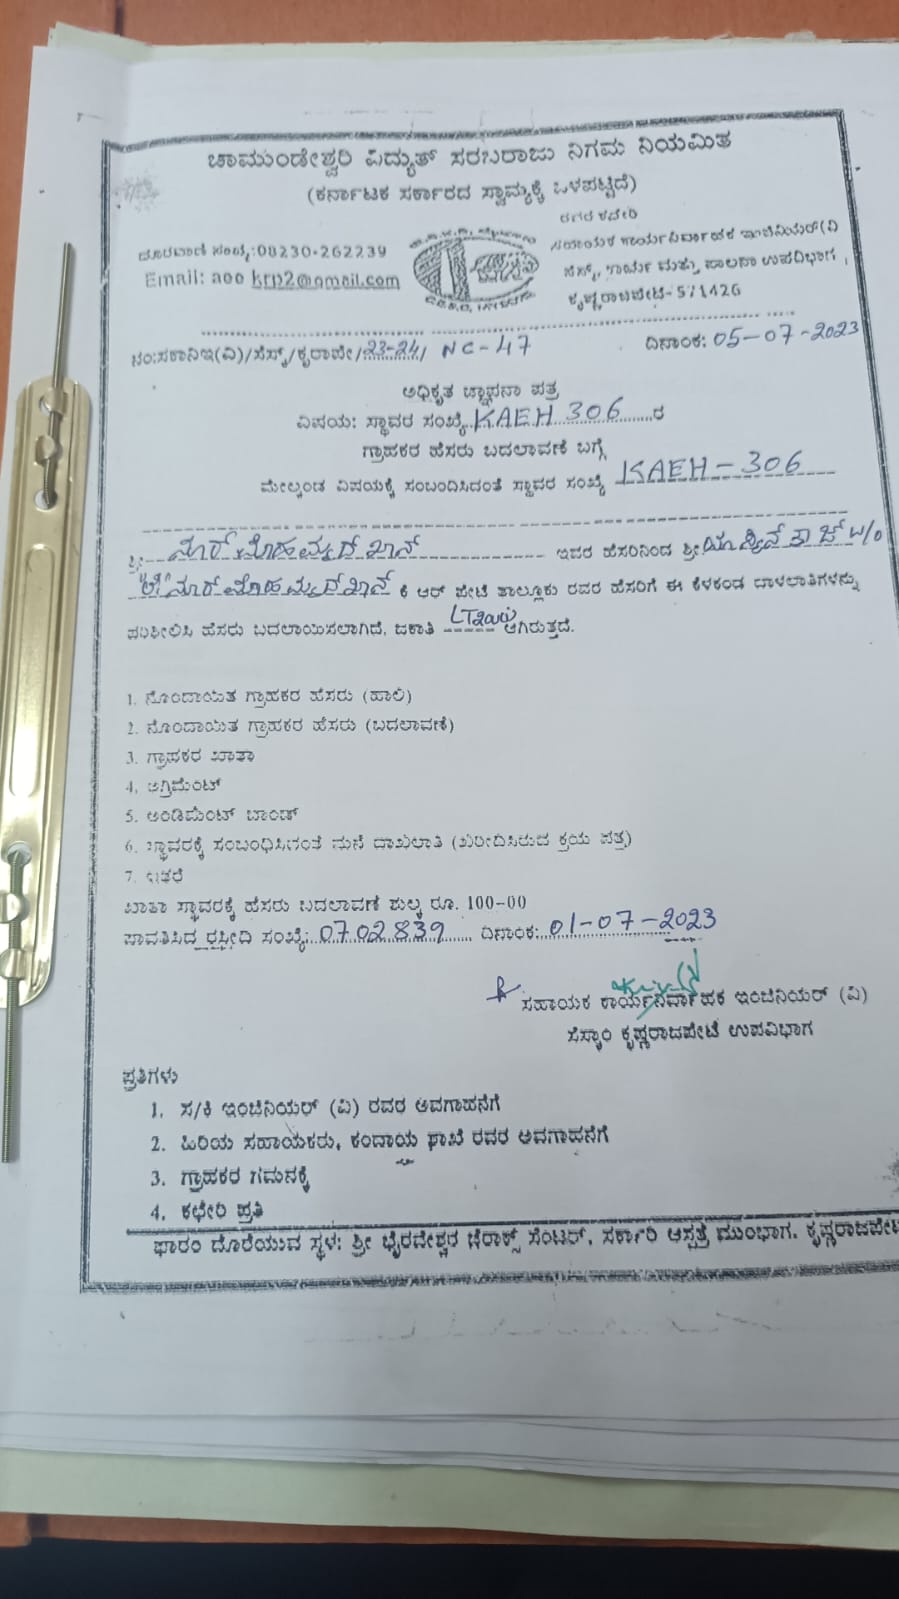 ಚಾಮುಂಡೇಶ್ವರಿ ವಿದ್ಯುತ್ ಸರಬರಾಜು ನಿಗಮ ನಿಯಮಿತ
(ಕರ್ನಾಟಕ ಸರ್ಕಾರದ ಸ್ವಾಮ್ಯಕ್ಕೆ ಒಳಪಟ್ಟಿದೆ)
ದೂರವಾಣಿ ಸಂಖ್ಯೆ:08230-262239
Email: aoo krp2@gmail.com
ರವರ ಕಛೇರಿ
ಸಹಾಯಕ ಕಾರ್ಯನಿರ್ವಾಹಕ ಇಂಜಿನಿಯರ್(ವಿ
ಸೆಸ್ಕ್, ಕಾರ್ಯ ಮತ್ತು ಪಾಲನಾ ಉಪವಿಭಾಗ,
ಕೃಷ್ಣರಾಜಪೇಟೆ-571426
ನಂ:ಸಕಾನಿಇ(ವಿ)/ಸೆಸ್ಕ್/ಕೃರಾಪೇ/23-24/ NC-47 ದಿನಾಂಕ: 05-07-2023
ಅಧಿಕೃತ ಜ್ಞಾಪನಾ ಪತ್ರ
ವಿಷಯ: ಸ್ಥಾವರ ಸಂಖ್ಯೆ KAEH 306 ರ
ಗ್ರಾಹಕರ ಹೆಸರು ಬದಲಾವಣೆ ಬಗ್ಗೆ
ಮೇಲ್ಕಂಡ ವಿಷಯಕ್ಕೆ ಸಂಬಂದಿಸಿದಂತೆ ಸ್ಥಾವರ ಸಂಖ್ಯೆ KAEH-306
ಶ್ರೀ ನೂರ್ ಮೊಹಮ್ಮದ್ ಖಾನ್ ಇವರ ಹೆಸರಿನಿಂದ ಶ್ರೀ ಯಾಸ್ಮೀನ್ ತಾಜ್ w/o
"ಲೇ" ನೂರ್ ಮೊಹಮ್ಮದ್ ಖಾನ್ ಕೆ ಆರ್ ಪೇಟೆ ತಾಲ್ಲೂಕು ರವರ ಹೆಸರಿಗೆ ಈ ಕೆಳಕಂಡ ದಾಖಲಾತಿಗಳನ್ನು
ಪರಿಶೀಲಿಸಿ ಹೆಸರು ಬದಲಾಯಿಸಲಾಗಿದೆ, ಜಕಾತಿ ಆಗಿರುತ್ತದೆ.
1. ನೊಂದಾಯಿತ ಗ್ರಾಹಕರ ಹೆಸರು (ಹಾಲಿ)
2. ನೊಂದಾಯಿತ ಗ್ರಾಹಕರ ಹೆಸರು (ಬದಲಾವಣೆ)
3. ಗ್ರಾಹಕರ ಖಾತಾ
4. ಅಗ್ರಿಮೆಂಟ್
5. ಅಂಡಿಮೆಂಟ್ ಬಾಂಡ್
6. ಸ್ಥಾವರಕ್ಕೆ ಸಂಬಂಧಿಸಿದಂತೆ ಮನೆ ದಾಖಲಾತಿ (ಖರೀದಿಸಿರುವ ಕ್ರಯ ಪತ್ರ)
7. ಇತರೆ
ಖಾತಾ ಸ್ಥಾವರಕ್ಕೆ ಹೆಸರು ಬದಲಾವಣೆ ಶುಲ್ಕ ರೂ. 100-00
ಪಾವತಿಸಿದ ರಶೀದಿ ಸಂಖ್ಯೆ: 0702839 ದಿನಾಂಕ: 01-07-2023
ಸಹಾಯಕ ಕಾರ್ಯನಿರ್ವಾಹಕ ಇಂಜಿನಿಯರ್ (ವಿ)
ಸೆಸ್ಕಾಂ ಕೃಷ್ಣರಾಜಪೇಟೆ ಉಪವಿಭಾಗ
ಪ್ರತಿಗಳು
1. ಸ/ಕಿ ಇಂಜಿನಿಯರ್ (ವಿ) ರವರ ಅವಗಾಹನೆಗೆ
2. ಹಿರಿಯ ಸಹಾಯಕರು, ಕಂದಾಯ ಶಾಖೆ ರವರ ಅವಗಾಹನೆಗೆ
3. ಗ್ರಾಹಕರ ಗಮನಕ್ಕೆ
4. ಕಛೇರಿ ಪ್ರತಿ
ಫಾರಂ ದೊರೆಯುವ ಸ್ಥಳ: ಶ್ರೀ ಭೈರವೇಶ್ವರ ಜೆರಾಕ್ಸ್ ಸೆಂಟರ್, ಸರ್ಕಾರಿ ಆಸ್ಪತ್ರೆ ಮುಂಭಾಗ. ಕೃಷ್ಣರಾಜಪೇಟೆ